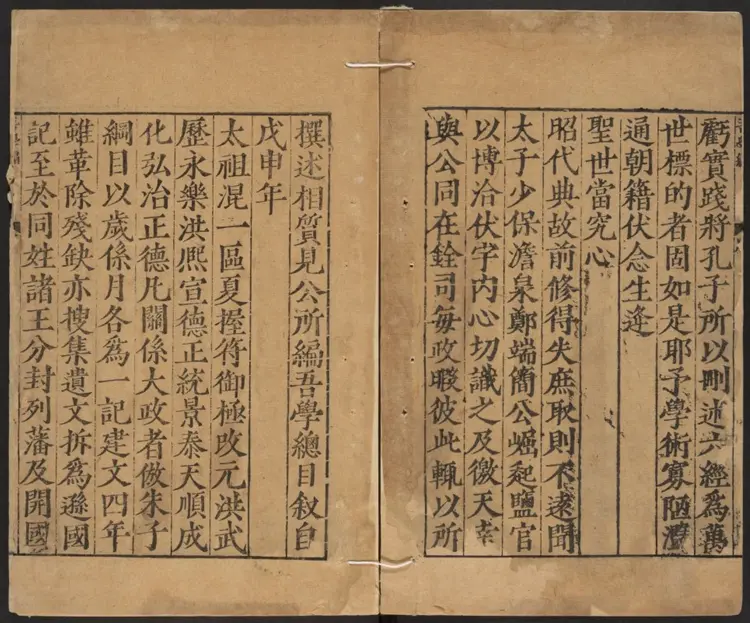 虧實踐將孔子所以刪述六經爲萬
世標的者固如是耶予學術寡陋濫
通朝籍伏念生逄
聖世當究心
昭代典故前修得失庶取則不遠聞
太子少保澹泉鄭端簡公崛起鹽官
以博洽伏宇内心切識之及徼天幸
與公同在銓司每政暇彼此輒以所
撰述相質見公所編吾學總目叙自
戊申年
太祖混一區夏握符御極改元洪武
歷永樂洪熙宣德正統景泰天順成
化弘治正德凡關係大政者倣朱子
綱目以歲係月各爲一記建文四年
雖革除殘缺亦搜集遺文拆爲遜國
記至於同姓諸王分封列藩及開國